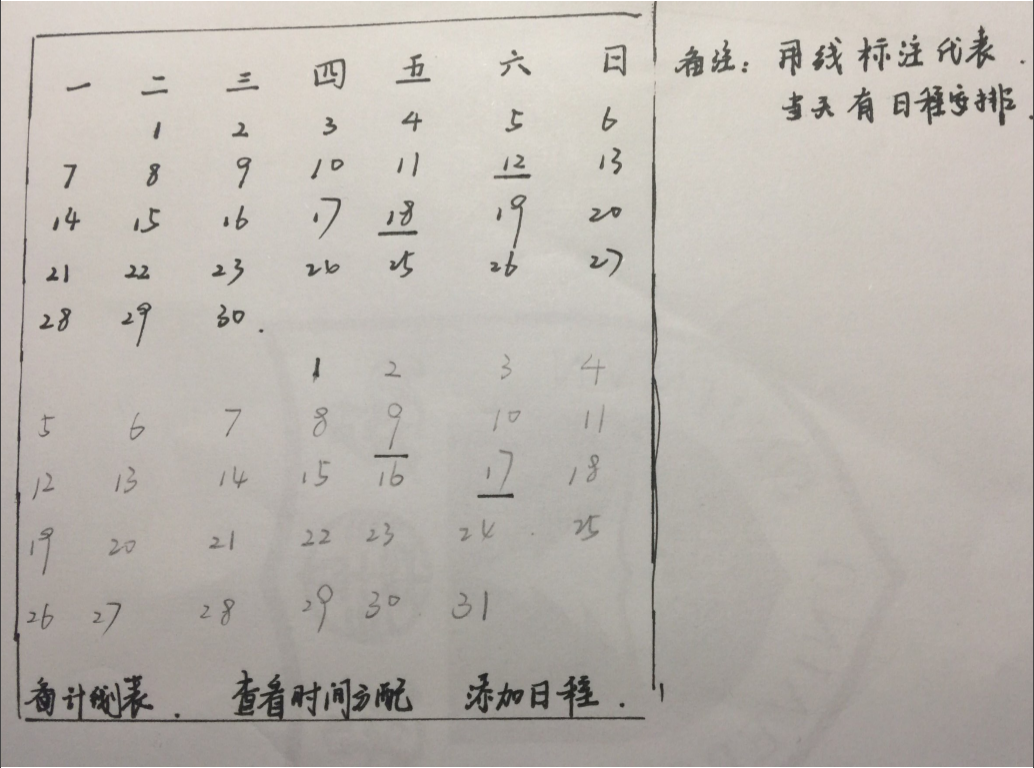 一 二 三 四 五 六 日
1 2 3 4 5 6
7 8 9 10 11 12 13
14 15 16 17 18 19 20
21 22 23 24 25 26 27
28 29 30.
1 2 3 4
5 6 7 8 9 10 11
12 13 14 15 16 17 18
19 20 21 22 23 24 25
26 27 28 29 30 31
看计划表. 查看时间分配 添加日程.
备注: 用线标注代表
当天有日程安排.